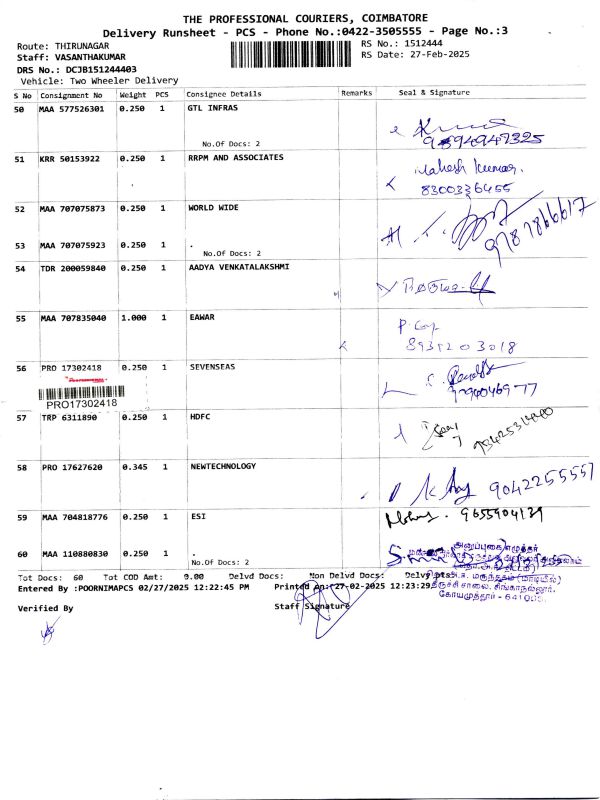 THE PROFESSIONAL COURIERS, COIMBATORE
Delivery Runsheet - PCS - Phone No.:0422-3505555 - Page No.:3
Route: THIRUNAGAR
RS No.: 1512444
Staff: VASANTHAKUMAR
RS Date: 27-Feb-2025
DRS No.: DCJB151244403
Vehicle: Two Wheeler Delivery
S No Consignment No Weight PCS Consignee Details Remarks Seal & Signature
50 MAA 577526301 0.250 1 GTL INFRAS
No.Of Docs: 2
51 KRR 50153922 0.250 1 RRPM AND ASSOCIATES
Mahesh Kumar.
8300336455
52 MAA 707075873 0.250 1 WORLD WIDE
9787866617
53 MAA 707075923 0.250 1 .
No.Of Docs: 2
54 TDR 200059840 0.250 1 AADYA VENKATALAKSHMI
55 MAA 707835040 1.000 1 EAWAR
56 PRO 17302418 0.250 1 SEVENSEAS
PRO17302418
57 TRP 6311890 0.250 1 HDFC
58 PRO 17627620 0.345 1 NEWTECHNOLOGY
9042255557
59 MAA 704818776 0.250 1 ESI
9655904139
60 MAA 110880830 0.250 1 .
No.Of Docs: 2
Tot Docs: 60 Tot COD Amt: 0.00 Delvd Docs: Non Delvd Docs: Delvy pts:
Entered By :POORNIMAPCS 02/27/2025 12:22:45 PM Printed on:27-02-2025 12:23:29
Verified By
Staff Signature